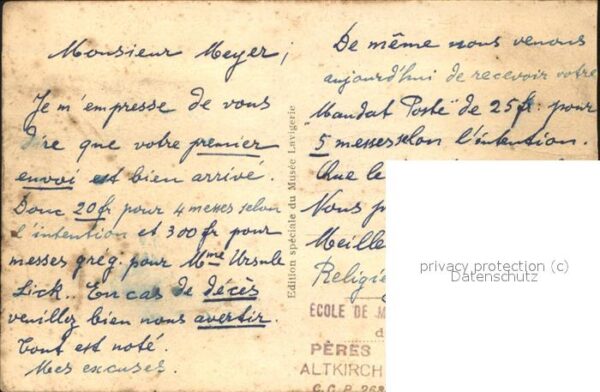 Monsieur Meyer;
Je m'empresse de vous
dire que votre premier
envoi est bien arrivé.
Donc 20fr pour 4 messes selon
l'intention et 300 fr pour
messes grég. pour Mme Ursule
Lick. En cas de décès
veuillez bien nous avertir.
Tout est noté.
Mes excuses.
Edition spéciale du Musée Lavigerie
De même nous venons
aujourd'hui de recevoir votre
Mandat Poste de 25fr. pour
5 messes selon l'intention.
Que le
Nous
Meille
Religie
ECOLE DE M
d
PÈRES
ALTKIRCH
C.C.P. 268
privacy protection (c)
Datenschutz